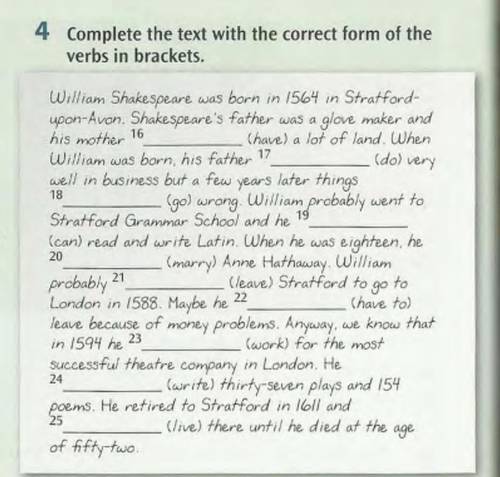 4 Complete the text with the correct form of the
verbs in brackets.
William Shakespeare was born in 1564 in Stratford-
upon-Avon. Shakespeare's father was a glove maker and
his mother 16 __________ (have) a lot of land. When
William was born, his father 17 __________ (do) very
well in business but a few years later things
18 __________ (go) wrong. William probably went to
Stratford Grammar School and he 19 __________
(can) read and write Latin. When he was eighteen, he
20 __________ (marry) Anne Hathaway. William
probably 21 __________ (leave) Stratford to go to
London in 1588. Maybe he 22 __________ (have to)
leave because of money problems. Anyway, we know that
in 1594 he 23 __________ (work) for the most
successful theatre company in London. He
24 __________ (write) thirty-seven plays and 154
poems. He retired to Stratford in 1611 and
25 __________ (live) there until he died at the age
of fifty-two.